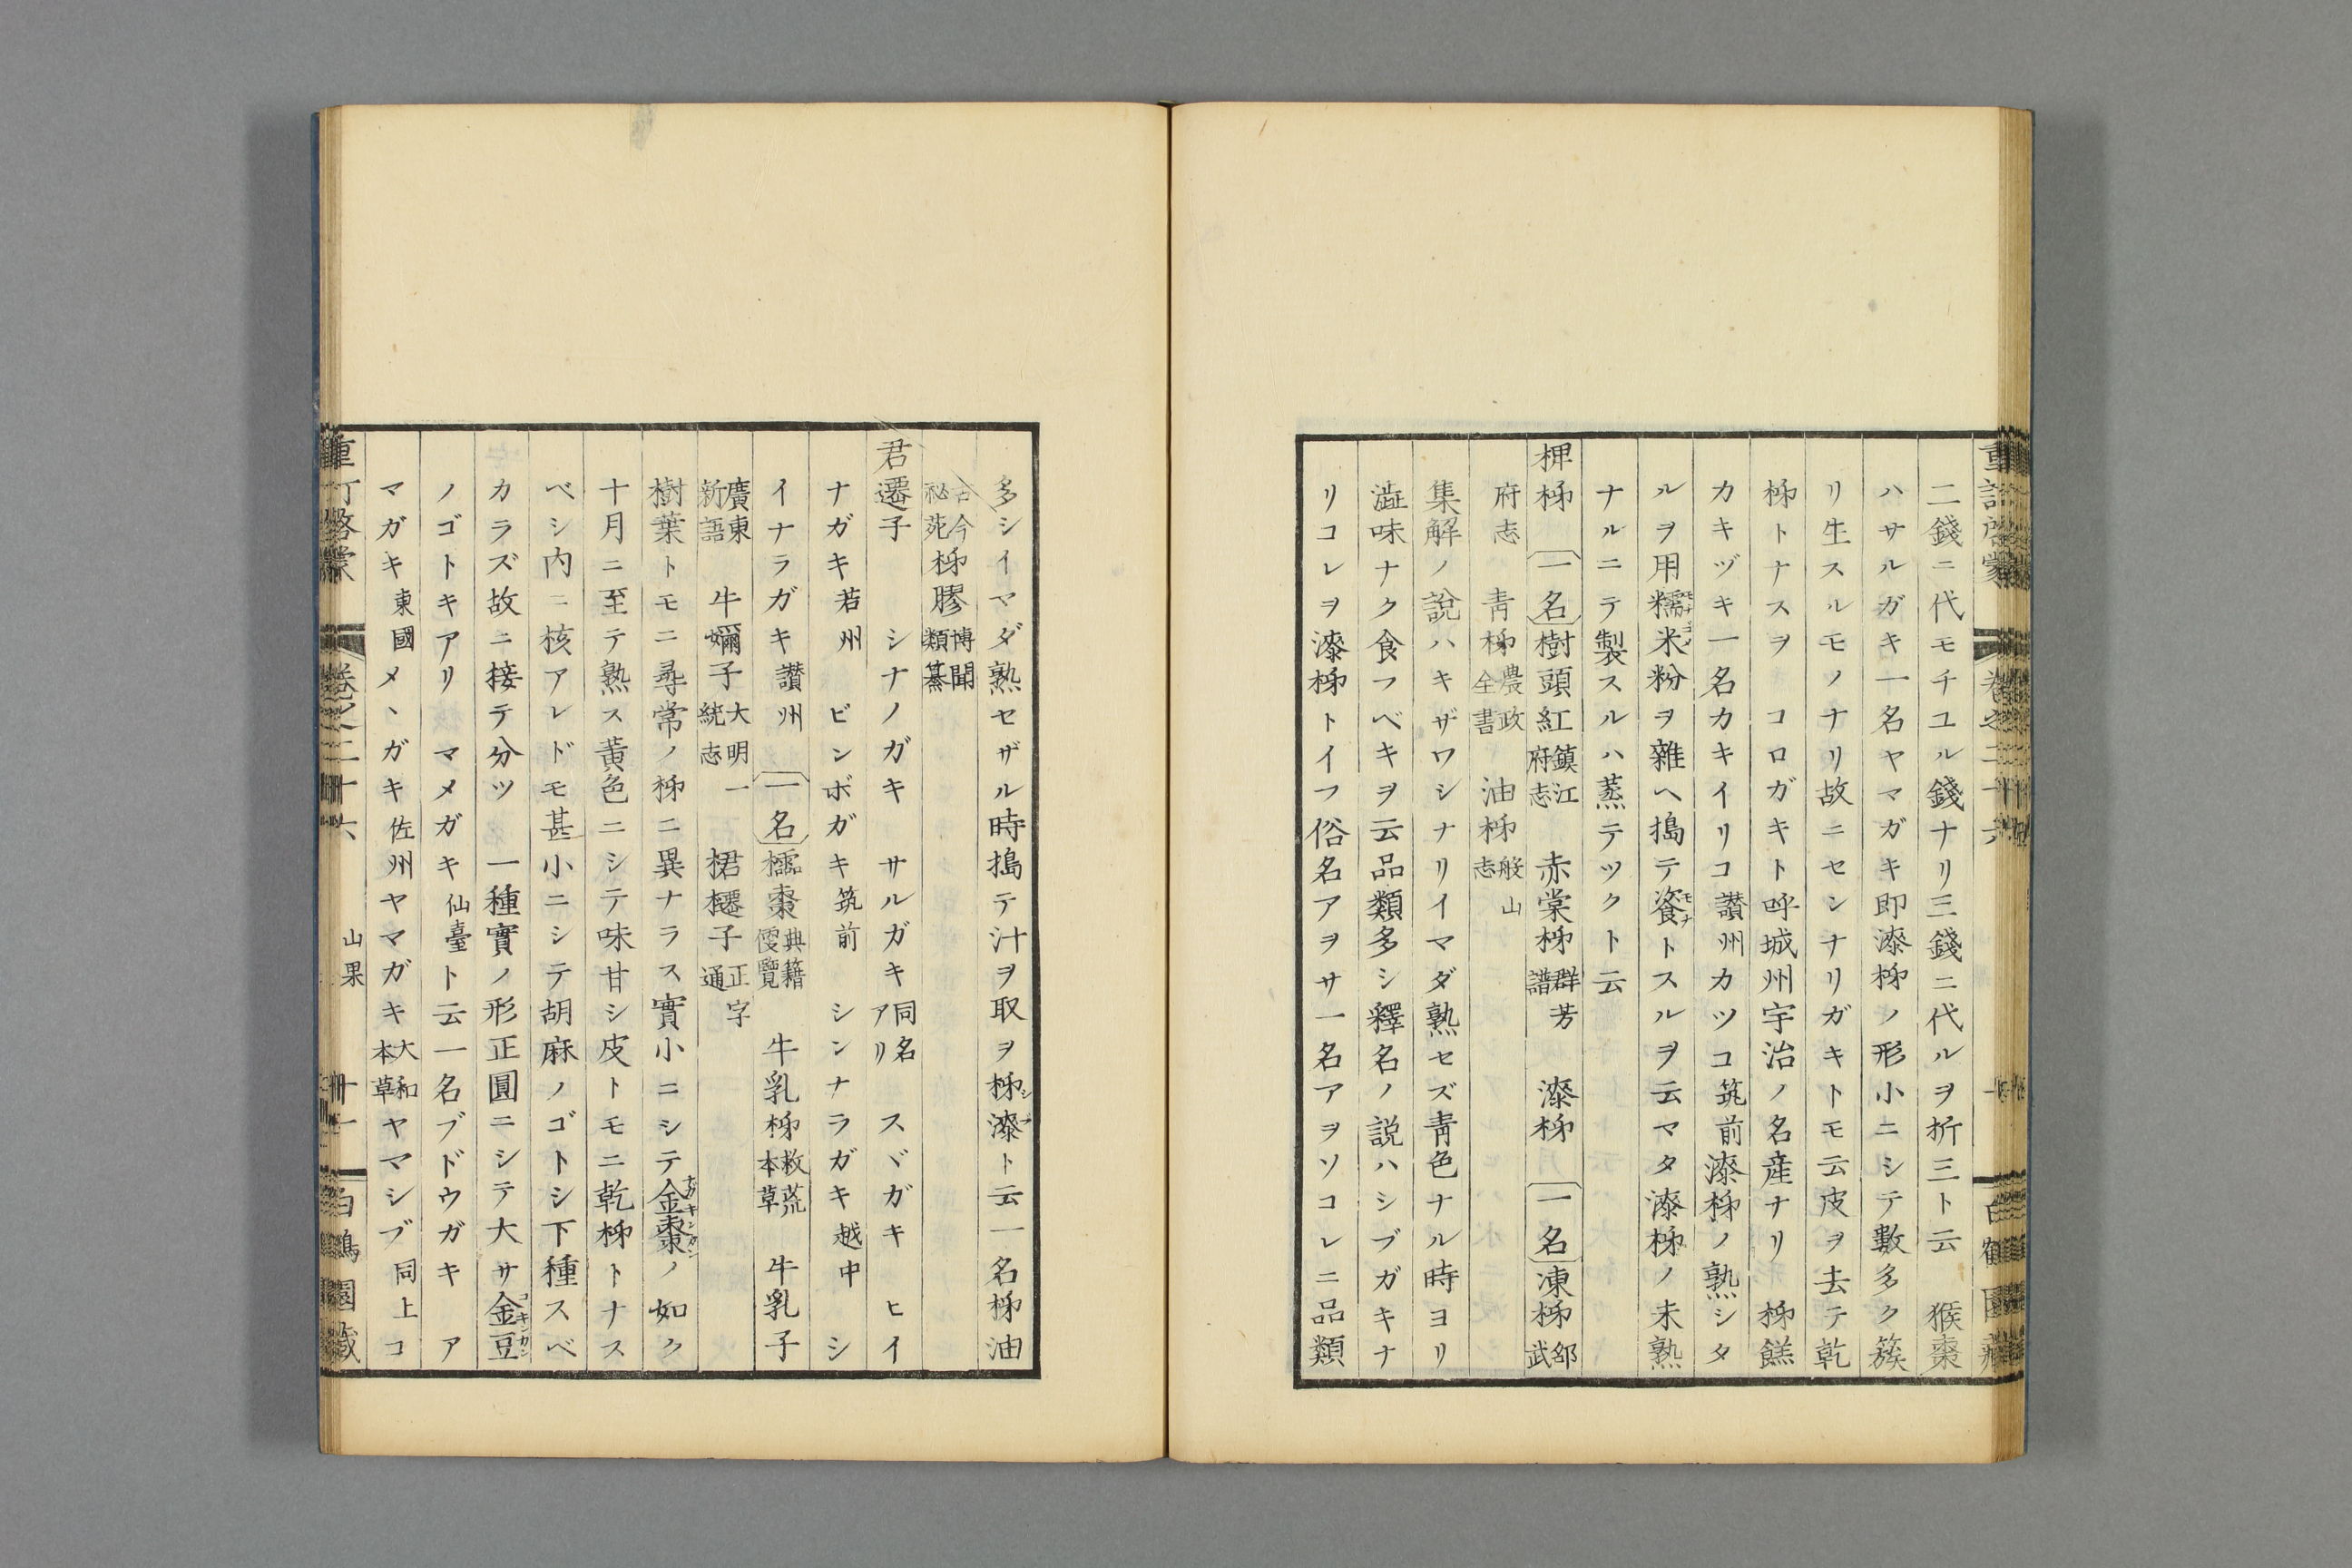 二錢ニ代モチユル錢ナリ三錢ニ代ルヲ折三ト云 猴棗
ハサルガキ一名ヤマガキ即漆柹ノ形小ニシテ數多ク簇
リ生スルモノナリ故ニセンナリガキトモ云皮ヲ去テ乾
柹トナスヲ コロガキト呼城州宇治ノ名産ナリ 柹餻
カキヅキ一名カキイリコ讃州カツコ筑前漆柹ノ熟シタ
ルヲ用糯米粉ヲ雜ヘ搗テ餈トスルヲ云マタ漆柹ノ未熟
ナルニテ製スルハ蒸テツクト云
椑柹 一名樹頭紅鎮江府志 赤棠柹群芳譜 漆柹 一名凍柹邵武
府志 青柹農政全書 油柹般山志
集解ノ說ハキザワシナリイマダ熟セズ青色ナル時ヨリ
澁味ナク食フベキヲ云品類多シ釋名ノ説ハシブガキナ
リコレヲ漆柹トイフ俗名アヲサ一名アヲソコレニ品類
多シイマダ熟セザル時搗テ汁ヲ取ヲ柹漆ト云一名柹油
古今祕苑柹膠博聞類纂
君遷子 シナノガキ サルガキ同名アリ スヾガキ ヒイ
ナガキ若州 ビンボガキ筑前 シンナラガキ越中 シ
イナラガキ讃州 一名檽棗典籍便覽 牛乳柹救荒本草 牛乳子
廣東新語 牛嬭子大明一統志 桾櫏子正字通
樹葉トモニ尋常ノ柹ニ異ナラス實小ニシテ金棗ノ如ク
十月ニ至テ熟ス黃色ニシテ味甘シ皮トモニ乾柹トナス
ベシ内ニ核アレドモ甚小ニシテ胡麻ノゴトシ下種スベ
カラズ故ニ接テ分ツ 一種實ノ形正圓ニシテ大サ金豆
ノゴトキアリ マメガキ仙臺ト云一名ブドウガキ ア
マガキ東國メヽガキ佐州ヤマガキ大和本草ヤマシブ同上コ
重訂啓蒙 卷之二十六 山果 十一 白鶴園藏